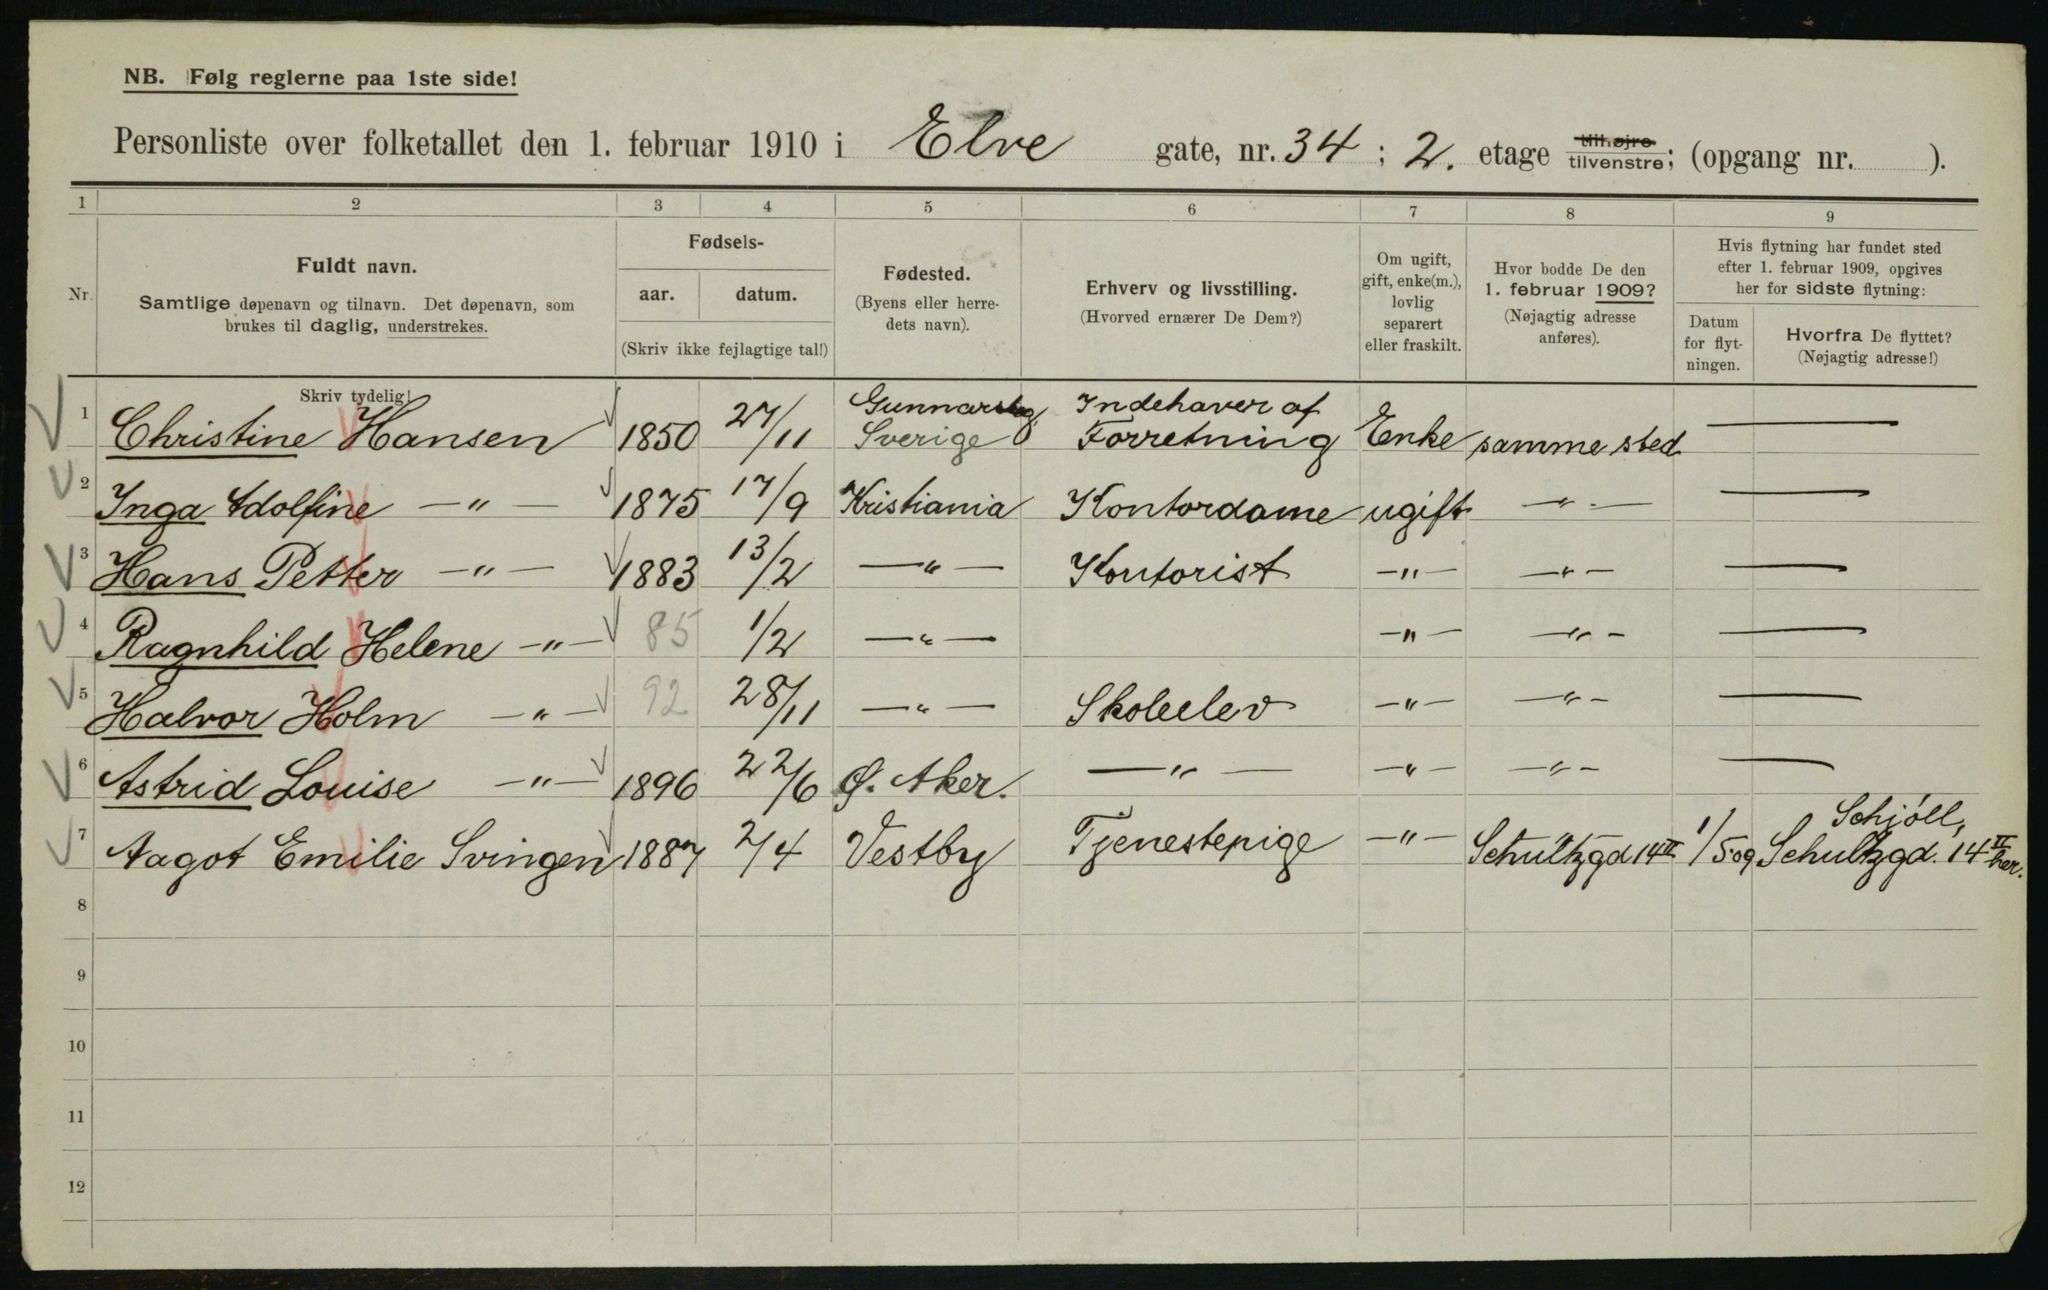 NB. Følg reglerne paa 1ste side!
Personliste over folketallet den 1. februar 1910 i Elve gate, nr. 34 ; 2. etage tilhøjre tilvenstre; (opgang nr. ).
1 2 3 4 5 6 7 8 9
Nr.
Fuldt navn.
Samtlige døpenavn og tilnavn. Det døpenavn, som
brukes til daglig, understrekes.
Skriv tydelig!
Fødsels-
aar. datum.
(Skriv ikke fejlagtige tal!)
Fødested.
(Byens eller herre-
dets navn).
Erhverv og livsstilling.
(Hvorved ernærer De Dem?)
Om ugift,
gift, enke(m.),
lovlig
separert
eller fraskilt.
Hvor bodde De den
1. februar 1909?
(Nøjagtig adresse
anføres).
Hvis flytning har fundet sted
efter 1. februar 1909, opgives
her for sidste flytning:
Datum
for flyt-
ningen.
Hvorfra De flyttet?
(Nøjagtig adresse!)
1 Christine Hansen 1850 27/11 Sverige Indehaver af Forretning Enke samme sted —
2 Inga Adolfine —"— 1875 17/9 Kristiania Kontordame ugift —"— —
3 Hans Petter —"— 1883 13/2 —"— Kontorist —"— —"— —
4 Ragnhild Helene —"— 85 1/2 —"— —"— —"— —
5 Halvor Holm —"— 92 28/11 —"— Skoleelev —"— —"— —
6 Astrid Louise —"— 1896 22/6 Ø. Aker. —"— —"— —"— —
7 Aagot Emilie Svingen 1887 2/4 Vestby Tjenestepige —"— Schultzgd 14 III 1/5 09 Schjöll, Schultzgd. 14 II her.
8
9
10
11
12